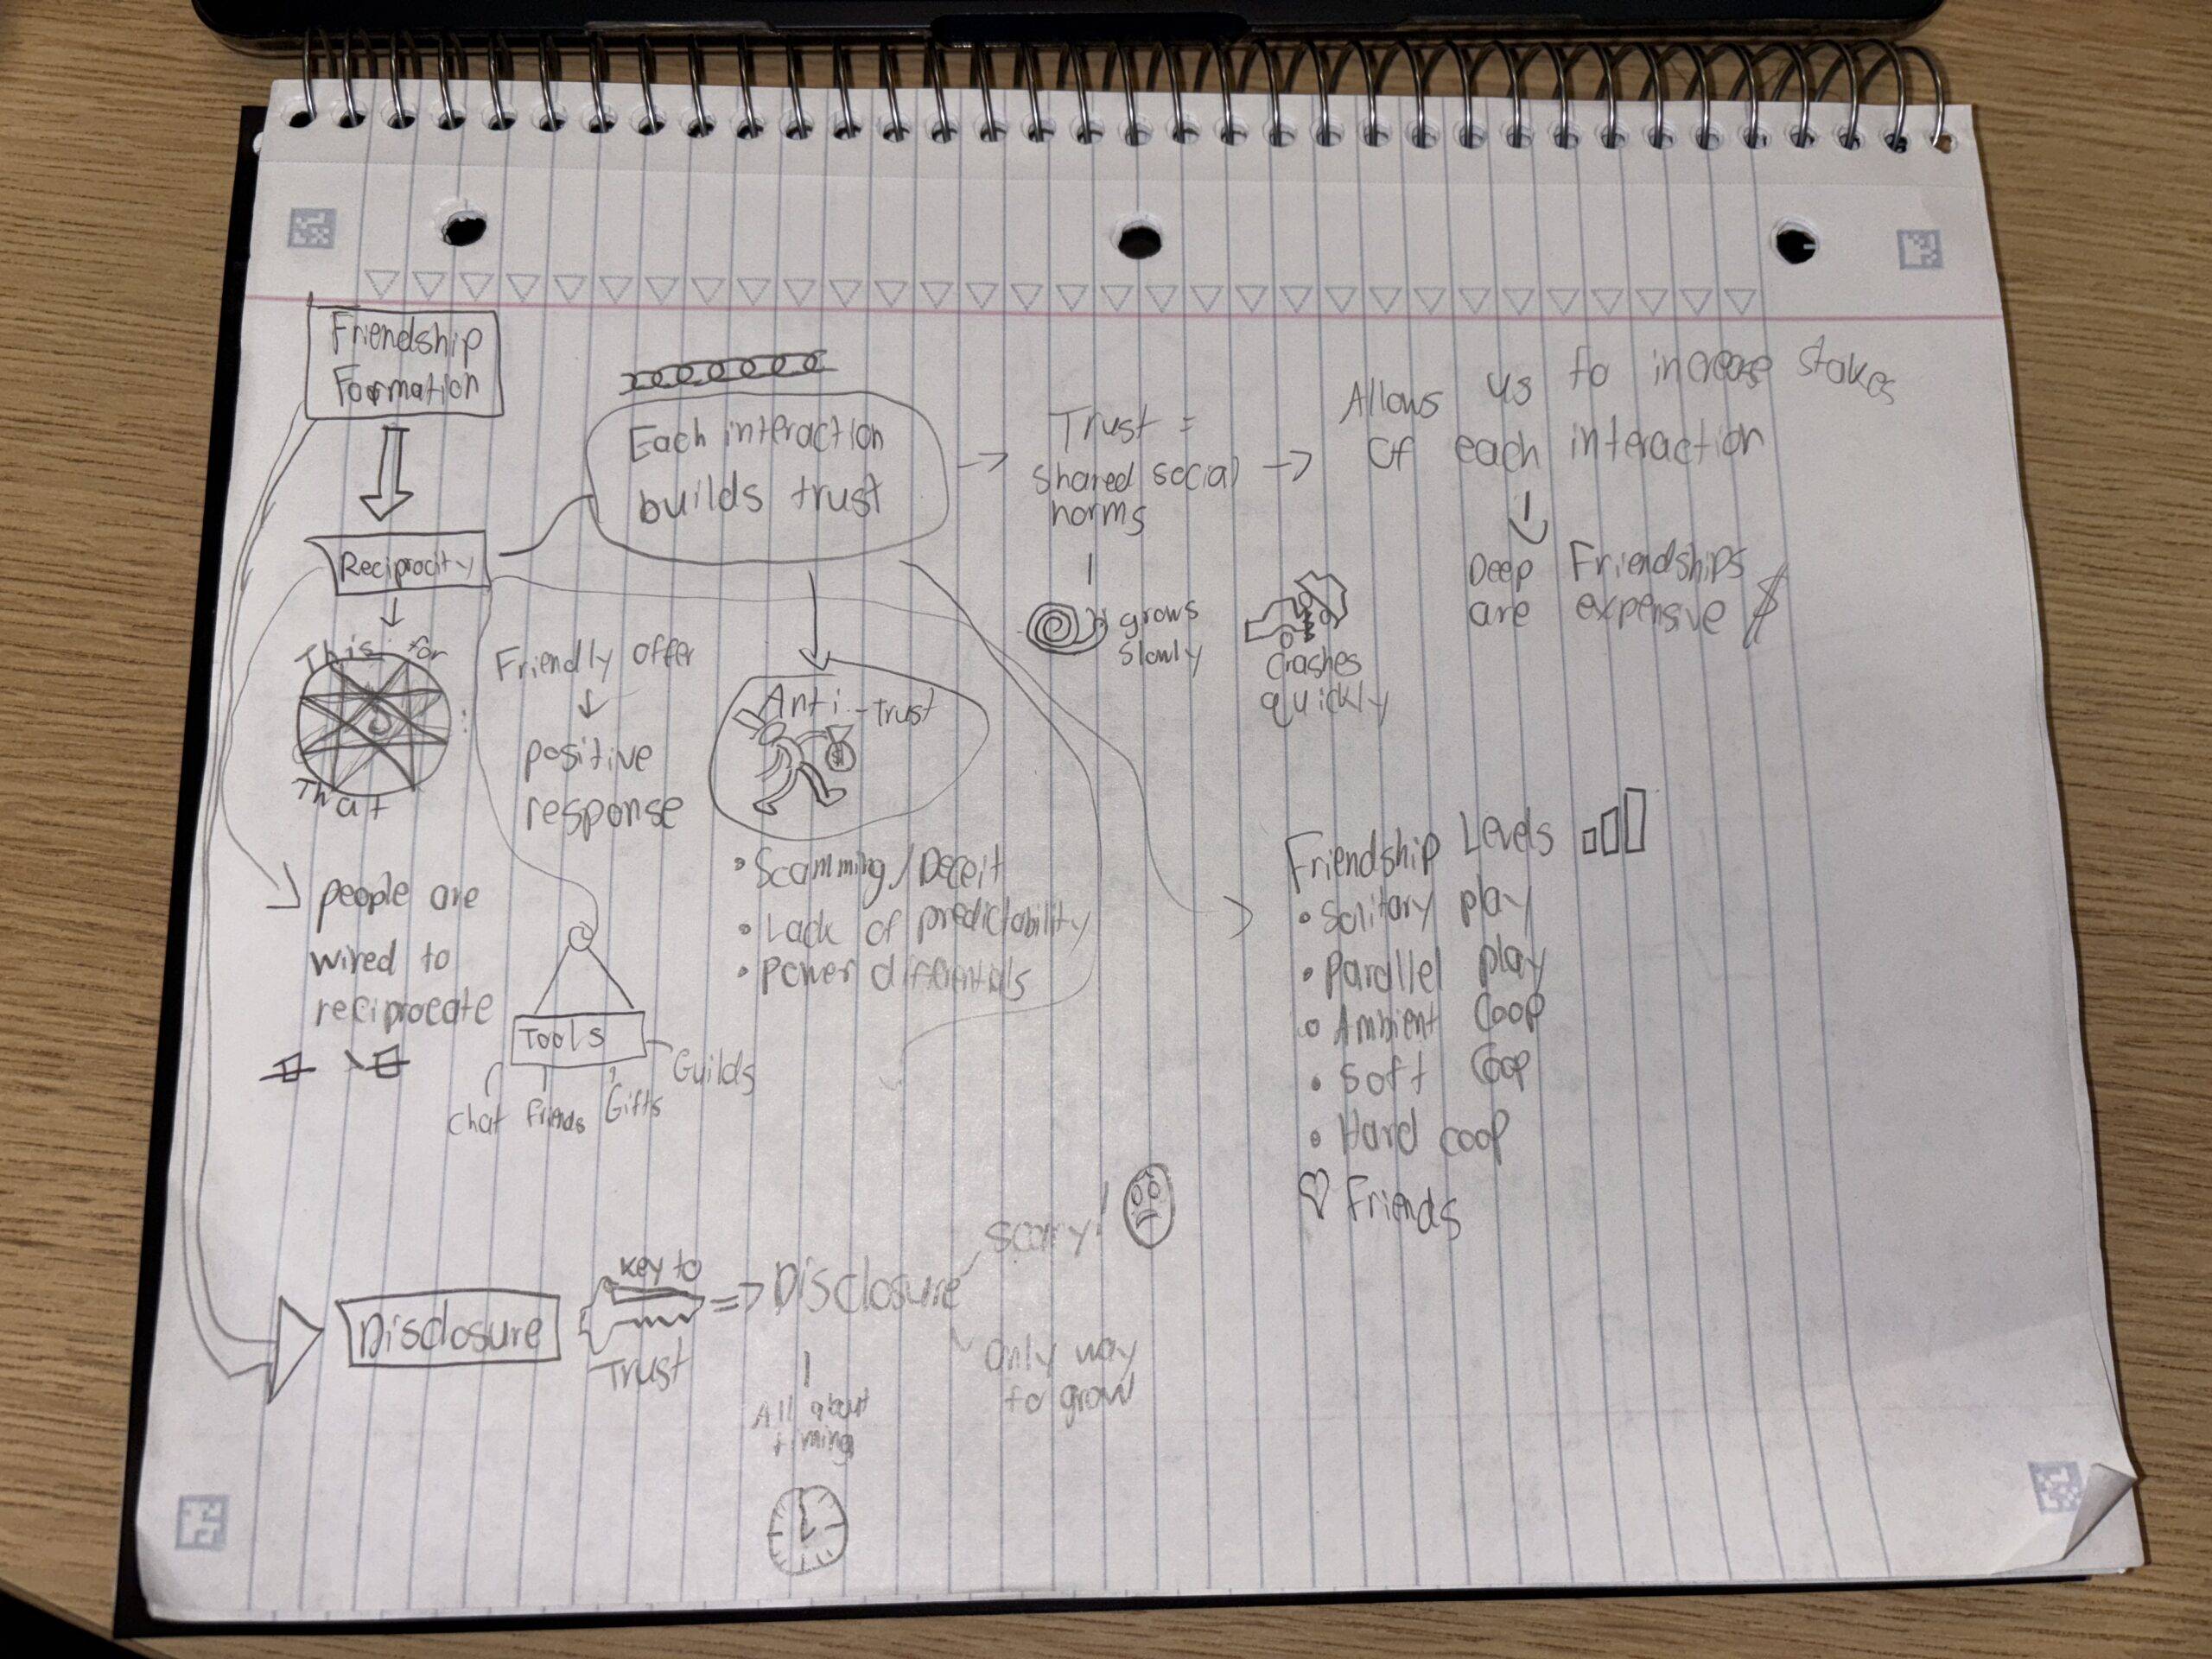 Friendship
Formation
Each interaction
builds trust
Trust =
shared social
norms
Allows us to increase stakes
of each interaction
Deep Friendships
are expensive $
grows
slowly
Crashes
quickly
Reciprocity
This for
That
Friendly offer
positive
response
Anti-trust
$
• Scamming/Deceit
• Lack of predictability
• Power differentials
people are
wired to
reciprocate
Tools
Chat Friends Gifts Guilds
Friendship Levels
• Solitary play
• Parallel play
• Ambient Coop
• Soft Coop
• Hard coop
♡ Friends
Disclosure
Key to
Trust
=> Disclosure
scary!
Only way
to grow
All about
timing